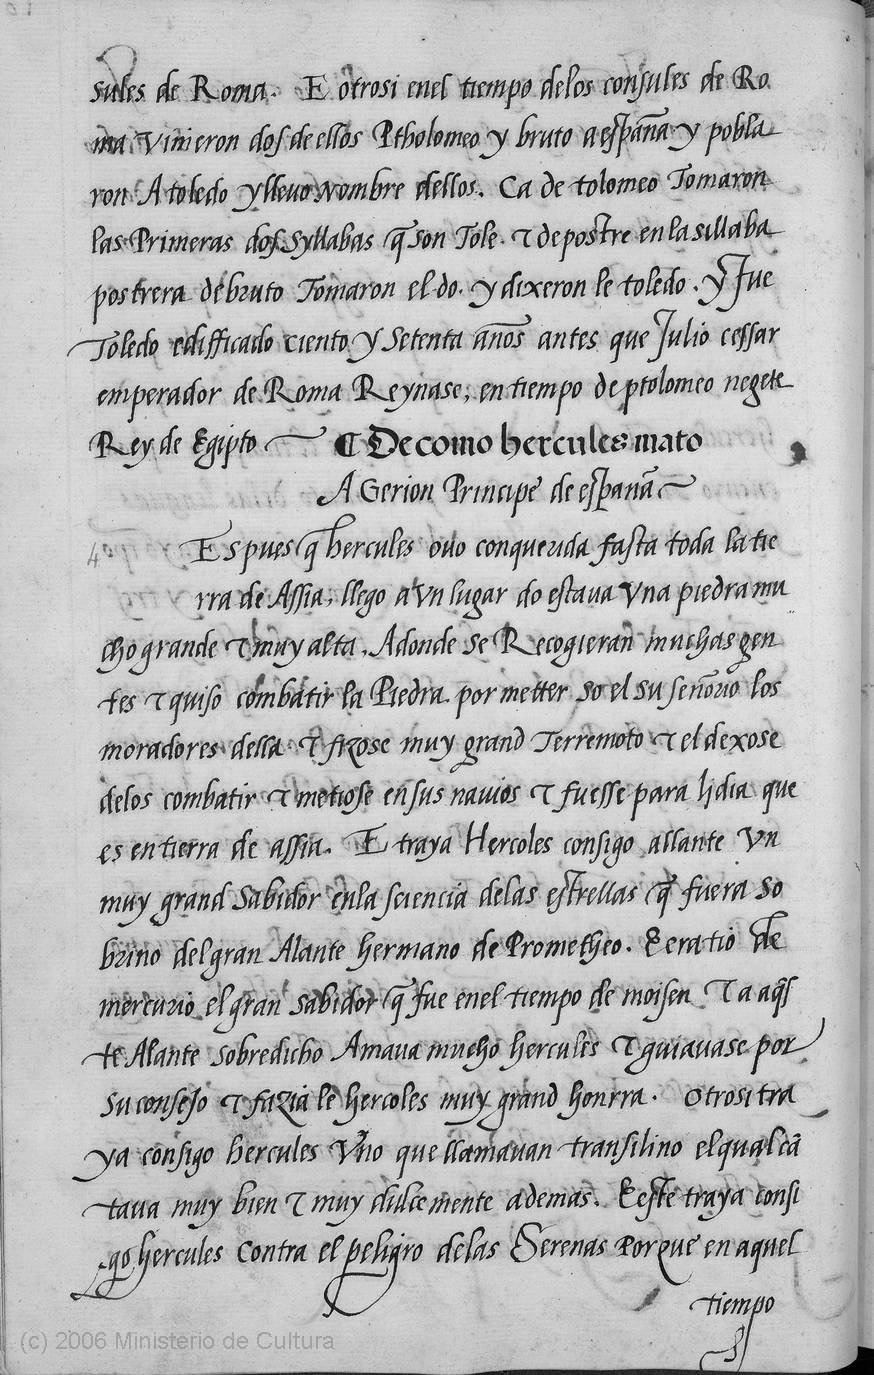 sules de Roma. E otrosi enel tiempo delos consules de Ro
ma vinieron dos de ellos Ptholomeo y bruto a españa y pobla
ron A toledo y llevo nombre dellos. Ca de tolomeo Tomaron
las Primeras dos Syllabas q̃ son Tole. τ de postre en la sillaba
postrera de bruto Tomaron el do. y dixeron le toledo. y fue
Toledo edifficado ciento y setenta años antes que Julio cessar
emperador de Roma Reynase, en tiempo de ptolomeo negete
Rey de Egipto ¶ De como hercules mato
A Gerion Principe de españa
4 Espues q̃ hercules ovo conquerida fasta toda la tie
rra de Assia, llego a Vn lugar do estava Vna piedra mu
cho grande τ muy alta, Adonde se Recogieran muchas gen
tes τ quiso combatir la Piedra por metter so el su señorio los
moradores della τ fizose muy grand Terremoto τ el dexose
delos combatir τ metiose en sus navios τ fuesse para lidia que
es en tierra de assia. E traya Hercoles consigo allante Vn
muy grand Sabidor enla sciencia delas estrellas q̃ fuera so
brino del gran Alante hermano de Prometheo. E era tio de
mercurio el gran sabidor q̃ fue enel tiempo de moisen τ a aq̃s
te Alante sobredicho Amava mucho hercules τ guiavase por
su consejo τ fazia le hercoles muy grand honrra. Otrosi tra
ya consigo hercules Vno que llamavan transilino el qual cã
tava muy bien τ muy dulcemente ademas. E este traya consi
go hercules Contra el peligro delas Serenas Porque en aquel
tiempo
(c) 2006 Ministerio de Cultura